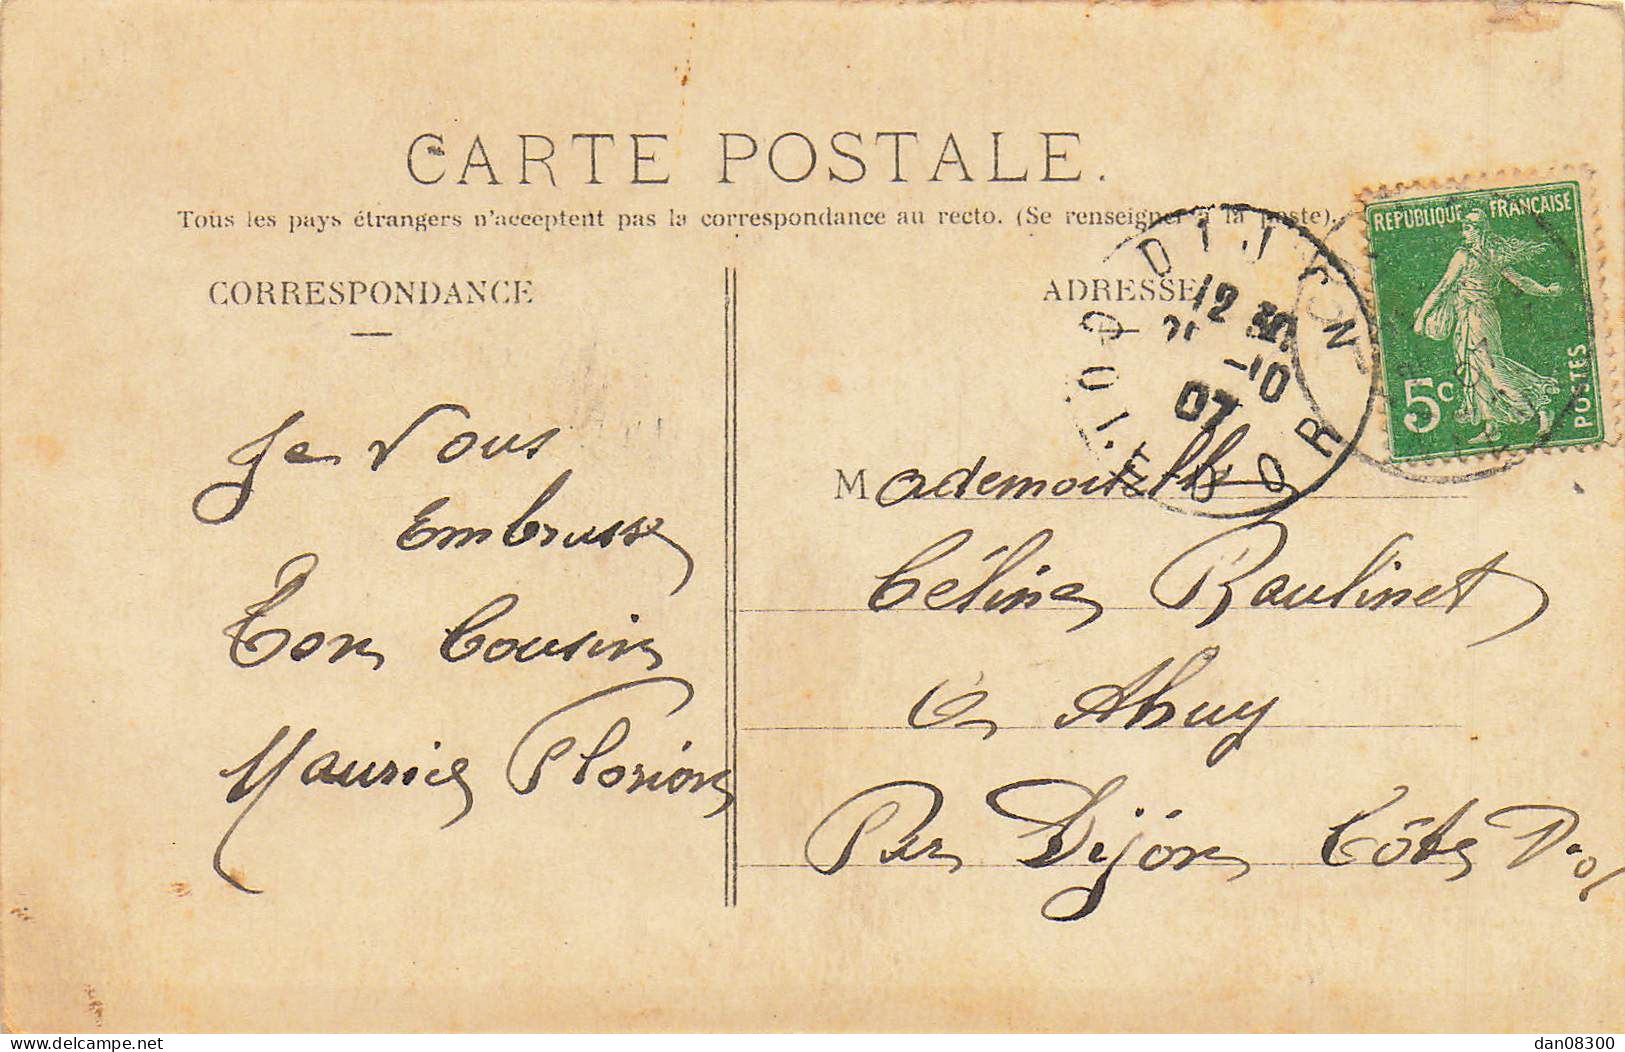 CARTE POSTALE.
Tous les pays étrangers n'acceptent pas la correspondance au recto. (Se renseigner à la poste).
CORRESPONDANCE
Je Vous
Embrasse
Ton Cousin
Maurice Florion
ADRESSE
DIJON
12 30
-10
07
COTE D'OR
REPUBLIQUE FRANÇAISE
5c
POSTES
Mademoiselle
Céline Raulinet
à Ahuy
Par Dijon Côte D'or
delcampe.net
dan08300